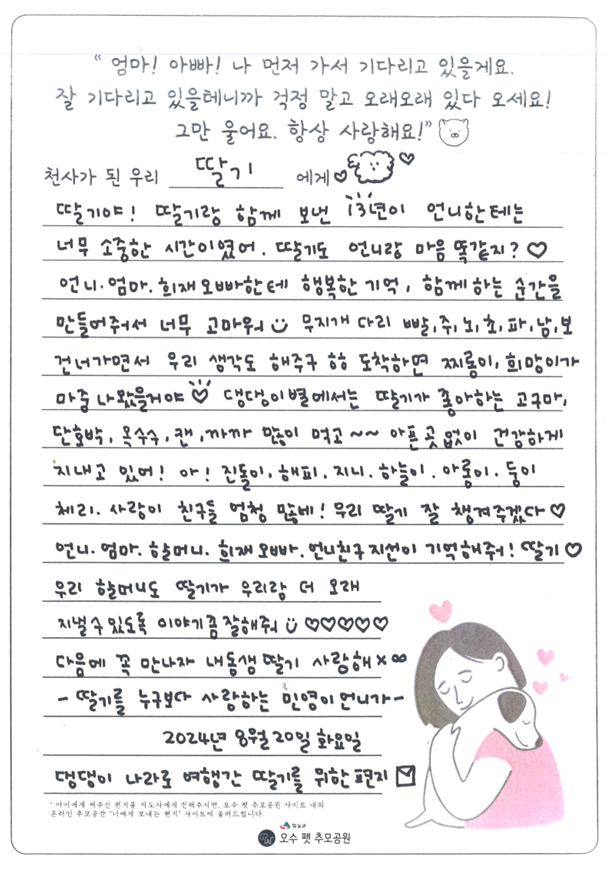 “ 엄마! 아빠! 나 먼저 가서 기다리고 있을게요.
잘 기다리고 있을테니까 걱정 말고 오래오래 있다 오세요!
그만 울어요. 항상 사랑해요!”
천사가 된 우리 딸기 에게♡ ♡
딸기야! 딸기랑 함께 보낸 13년이 언니한테는
너무 소중한 시간이였어. 딸기도 언니랑 마음 똑같지? ♡
언니. 엄마. 희재오빠한테 행복한 기억, 함께하는 순간을
만들어줘서 너무 고마워 무지개 다리 빨,주,노,초,파,남,보
건너가면서 우리 생각도 해주구 ㅎㅎ 도착하면 찌롱이, 희망이가
마중나왔을거야 ♡ 댕댕이별에서는 딸기가 좋아하는 고구마,
단호박, 옥수수, 캔, 까까 많이 먹고~~ 아픈곳없이 건강하게
지내고 있어! 아! 진돌이, 해피, 지니. 하늘이. 아롱이. 둥이
체리. 사랑이 친구들 엄청 많네! 우리 딸기 잘 챙겨주겠다♡
언니. 엄마. 할머니. 희재오빠. 언니친구지선이 기억해줘! 딸기♡
우리 할머니도 딸기가 우리랑 더 오래
지낼수있도록 이야기좀잘해줘 ♡♡♡♡♡
다음에 꼭 만나자 내동생 딸기 사랑해×∞
- 딸기를 누구보다 사랑하는 민영이언니가-
2024년 8월 20일 화요일
댕댕이 나라로 여행간 딸기를 위한편지
* 아이에게 써주신 편지를 지도사에게 전해주시면, 오수 펫 추모공원 사이트 내의
온라인 추모공간 "너에게 보내는 편지" 사이트에 올려드립니다.
임실군
오수 펫 추모공원